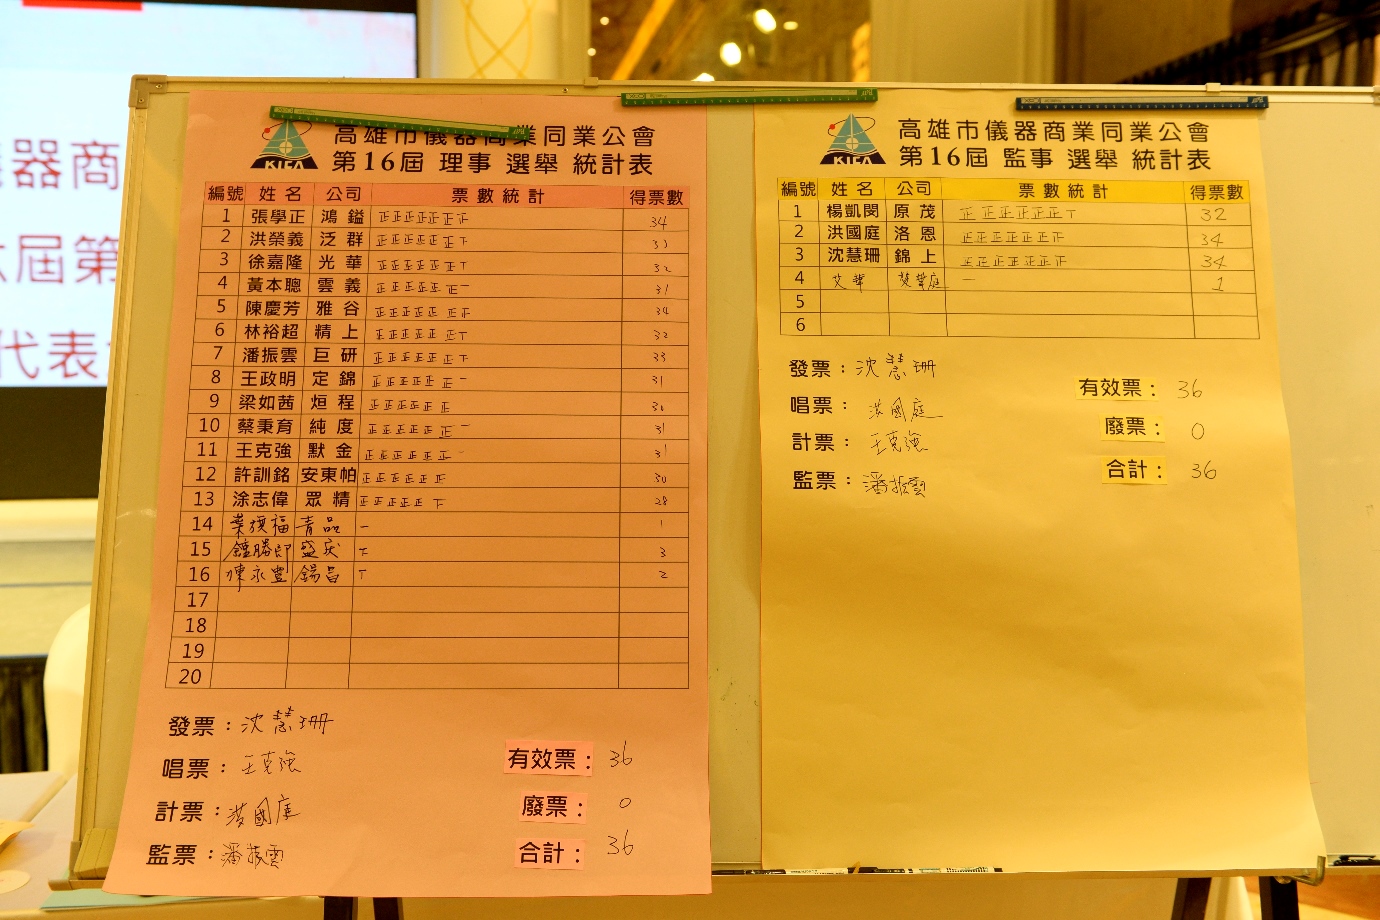 器商
屆第
代表
KIEA
高雄市儀器商業同業公會
第16屆 理事 選舉 統計表
編號 姓名 公司 票數統計 得票數
1 張學正 鴻鎰 正正正正正正正 34
2 洪榮義 泛群 正正正正正正下 33
3 徐嘉隆 光華 正正正正正正丅 32
4 黃本聰 雲義 正正正正正正一 31
5 陳慶芳 雅谷 正正正正正正正 34
6 林裕超 精上 正正正正正正丅 32
7 潘振雲 巨研 正正正正正正下 33
8 王政明 定錦 正正正正正正一 31
9 梁如茜 烜程 正正正正正正 30
10 蔡秉育 純度 正正正正正正一 31
11 王克強 默金 正正正正正正一 31
12 許訓銘 安東帕 正正正正正正 30
13 涂志偉 眾精 正正正正正下 28
14 青品 一 1
15 鐘勝 盛 下 3
16 陳永豐 錫昌 丅 2
17
18
19
20
發票：沈慧珊
唱票：王克強
計票：洪國庭
監票：潘振雲
有效票：36
廢票：0
合計：36
KIFA
高雄市儀器商業同業公會
第16屆 監事 選舉 統計表
編號 姓名 公司 票數統計 得票數
1 楊凱閔 原茂 正正正正正正丅 32
2 洪國庭 洛恩 正正正正正正正 34
3 沈慧珊 錦上 正正正正正正正 34
4 艾華 一 1
5
6
發票：沈慧珊
唱票：洪國庭
計票：王克強
監票：潘振雲
有效票：36
廢票：0
合計：36